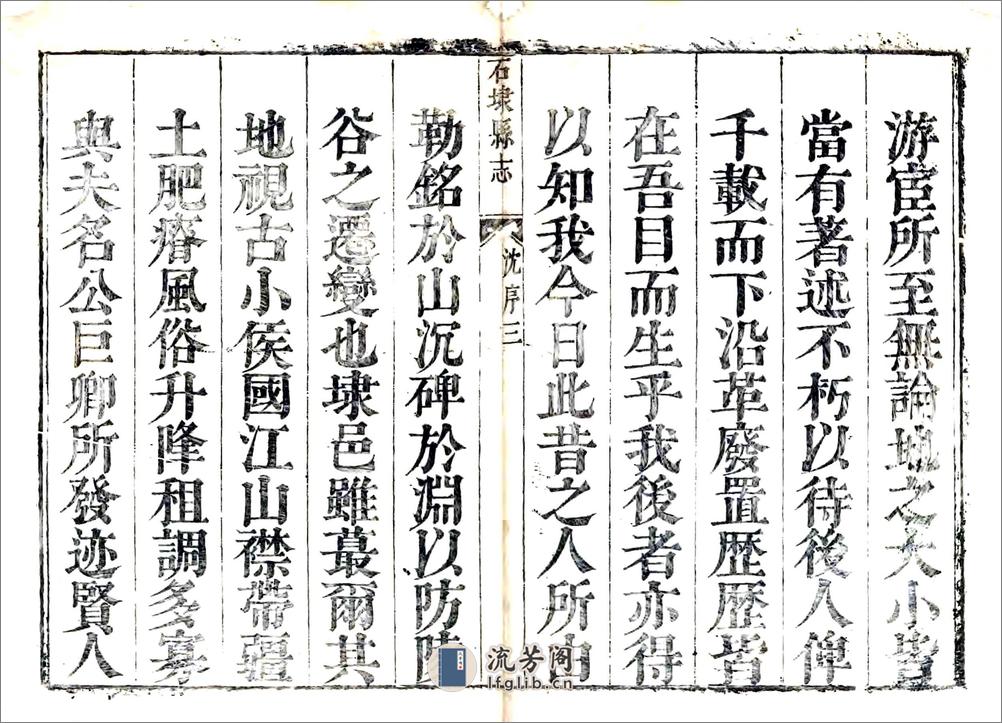 游宦所至無論地之大小皆
當有著述不朽以待後人俾
千載而下沿革廢置歴歴皆
在吾目而生乎我後者亦得
以知我今日此昔之人所由
石埭縣志
沈序
三
勒銘於山沉碑於淵以防陵
谷之遷變也埭邑雖蕞爾其
地視古小侯國江山襟帶疆
土肥瘠風俗升降租調多寡
與夫名公巨卿所發迹賢人
流芳阁
lfglib.cn